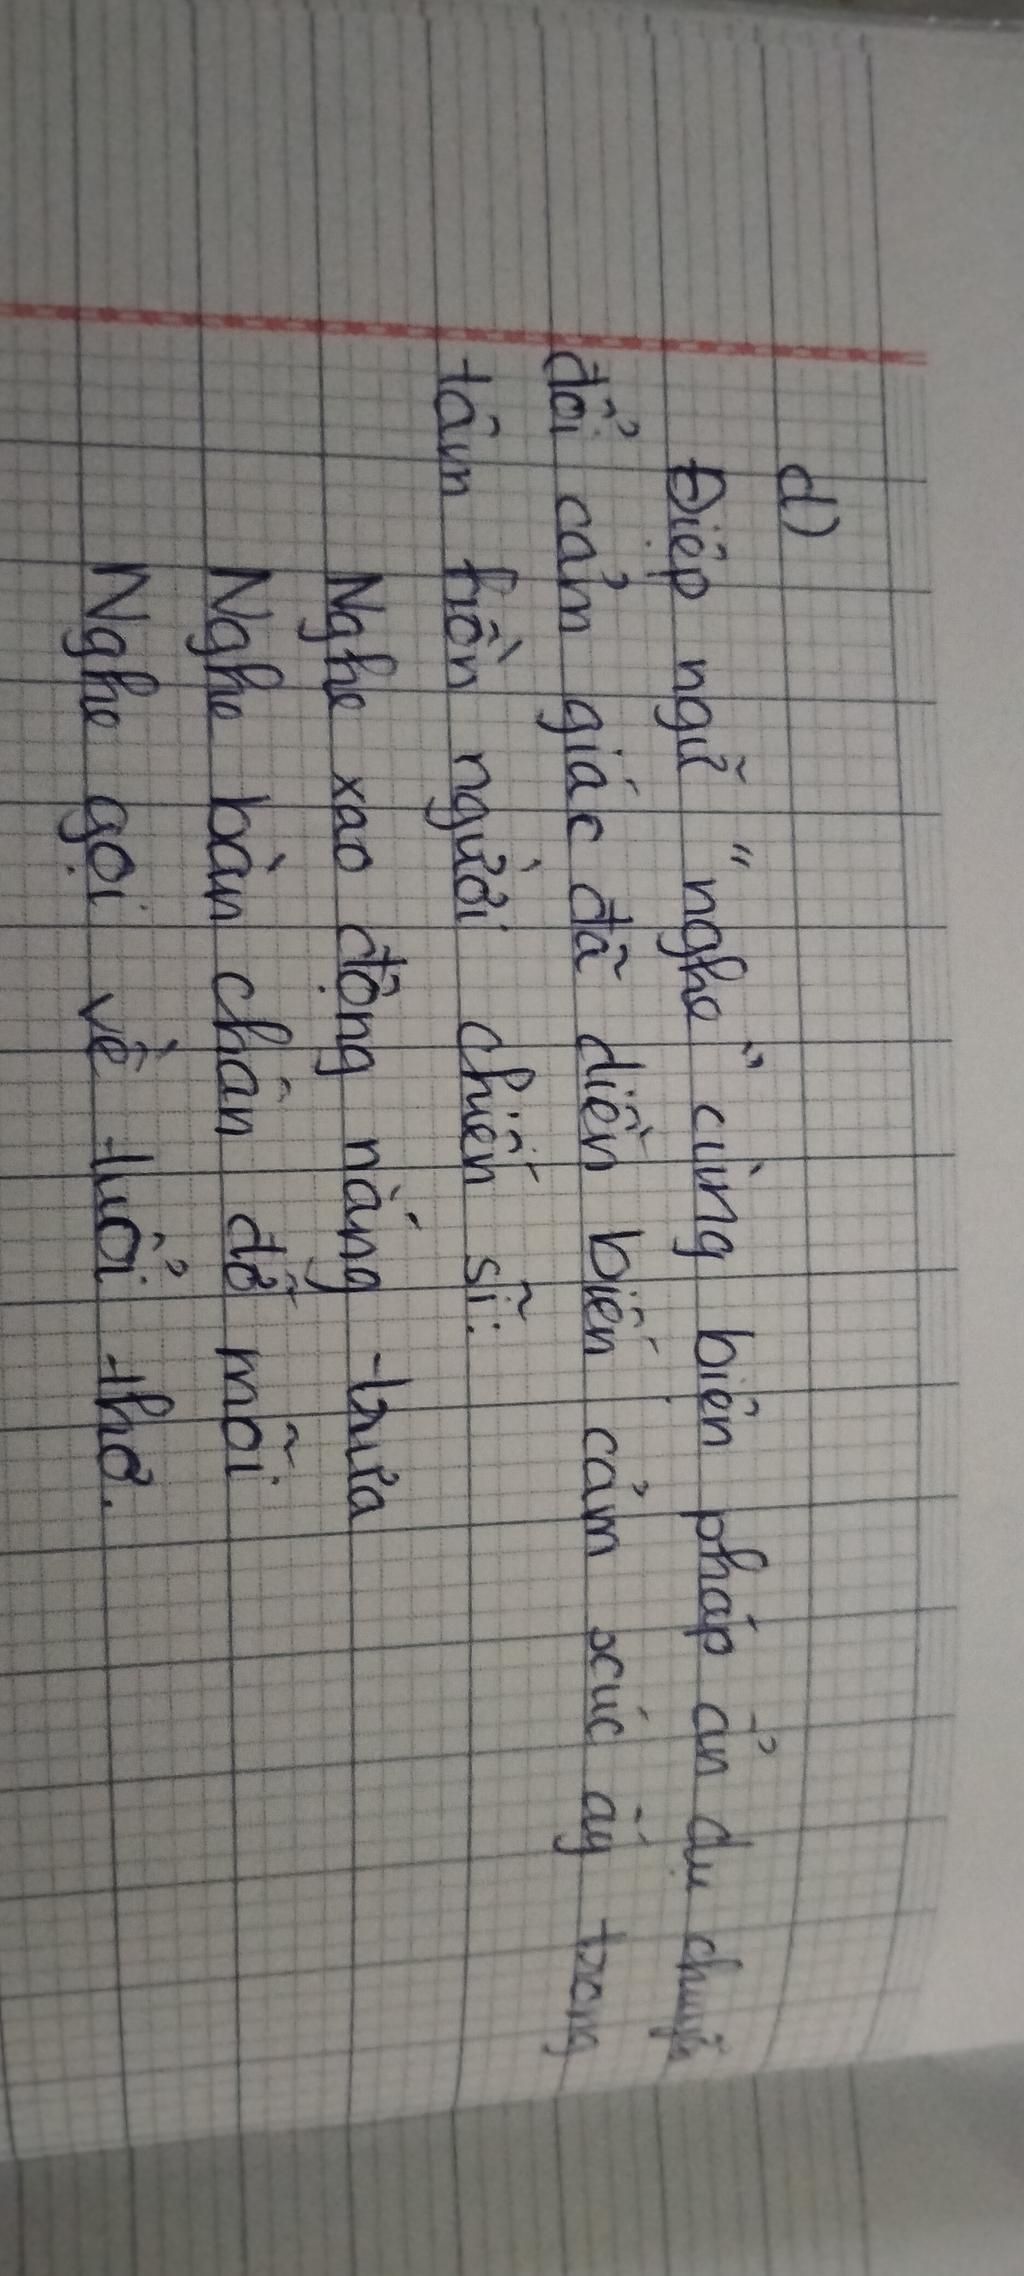 d)
Điệp ngữ "nghe" cùng biện pháp ẩn dụ chuyển
đổi cảm giác đã diễn biến cảm xúc ấy trong
tâm hồn người chiến sĩ:
Nghe xao động nắng trưa
Nghe bàn chân đỡ mỗi
Nghe gọi về tuổi thơ.